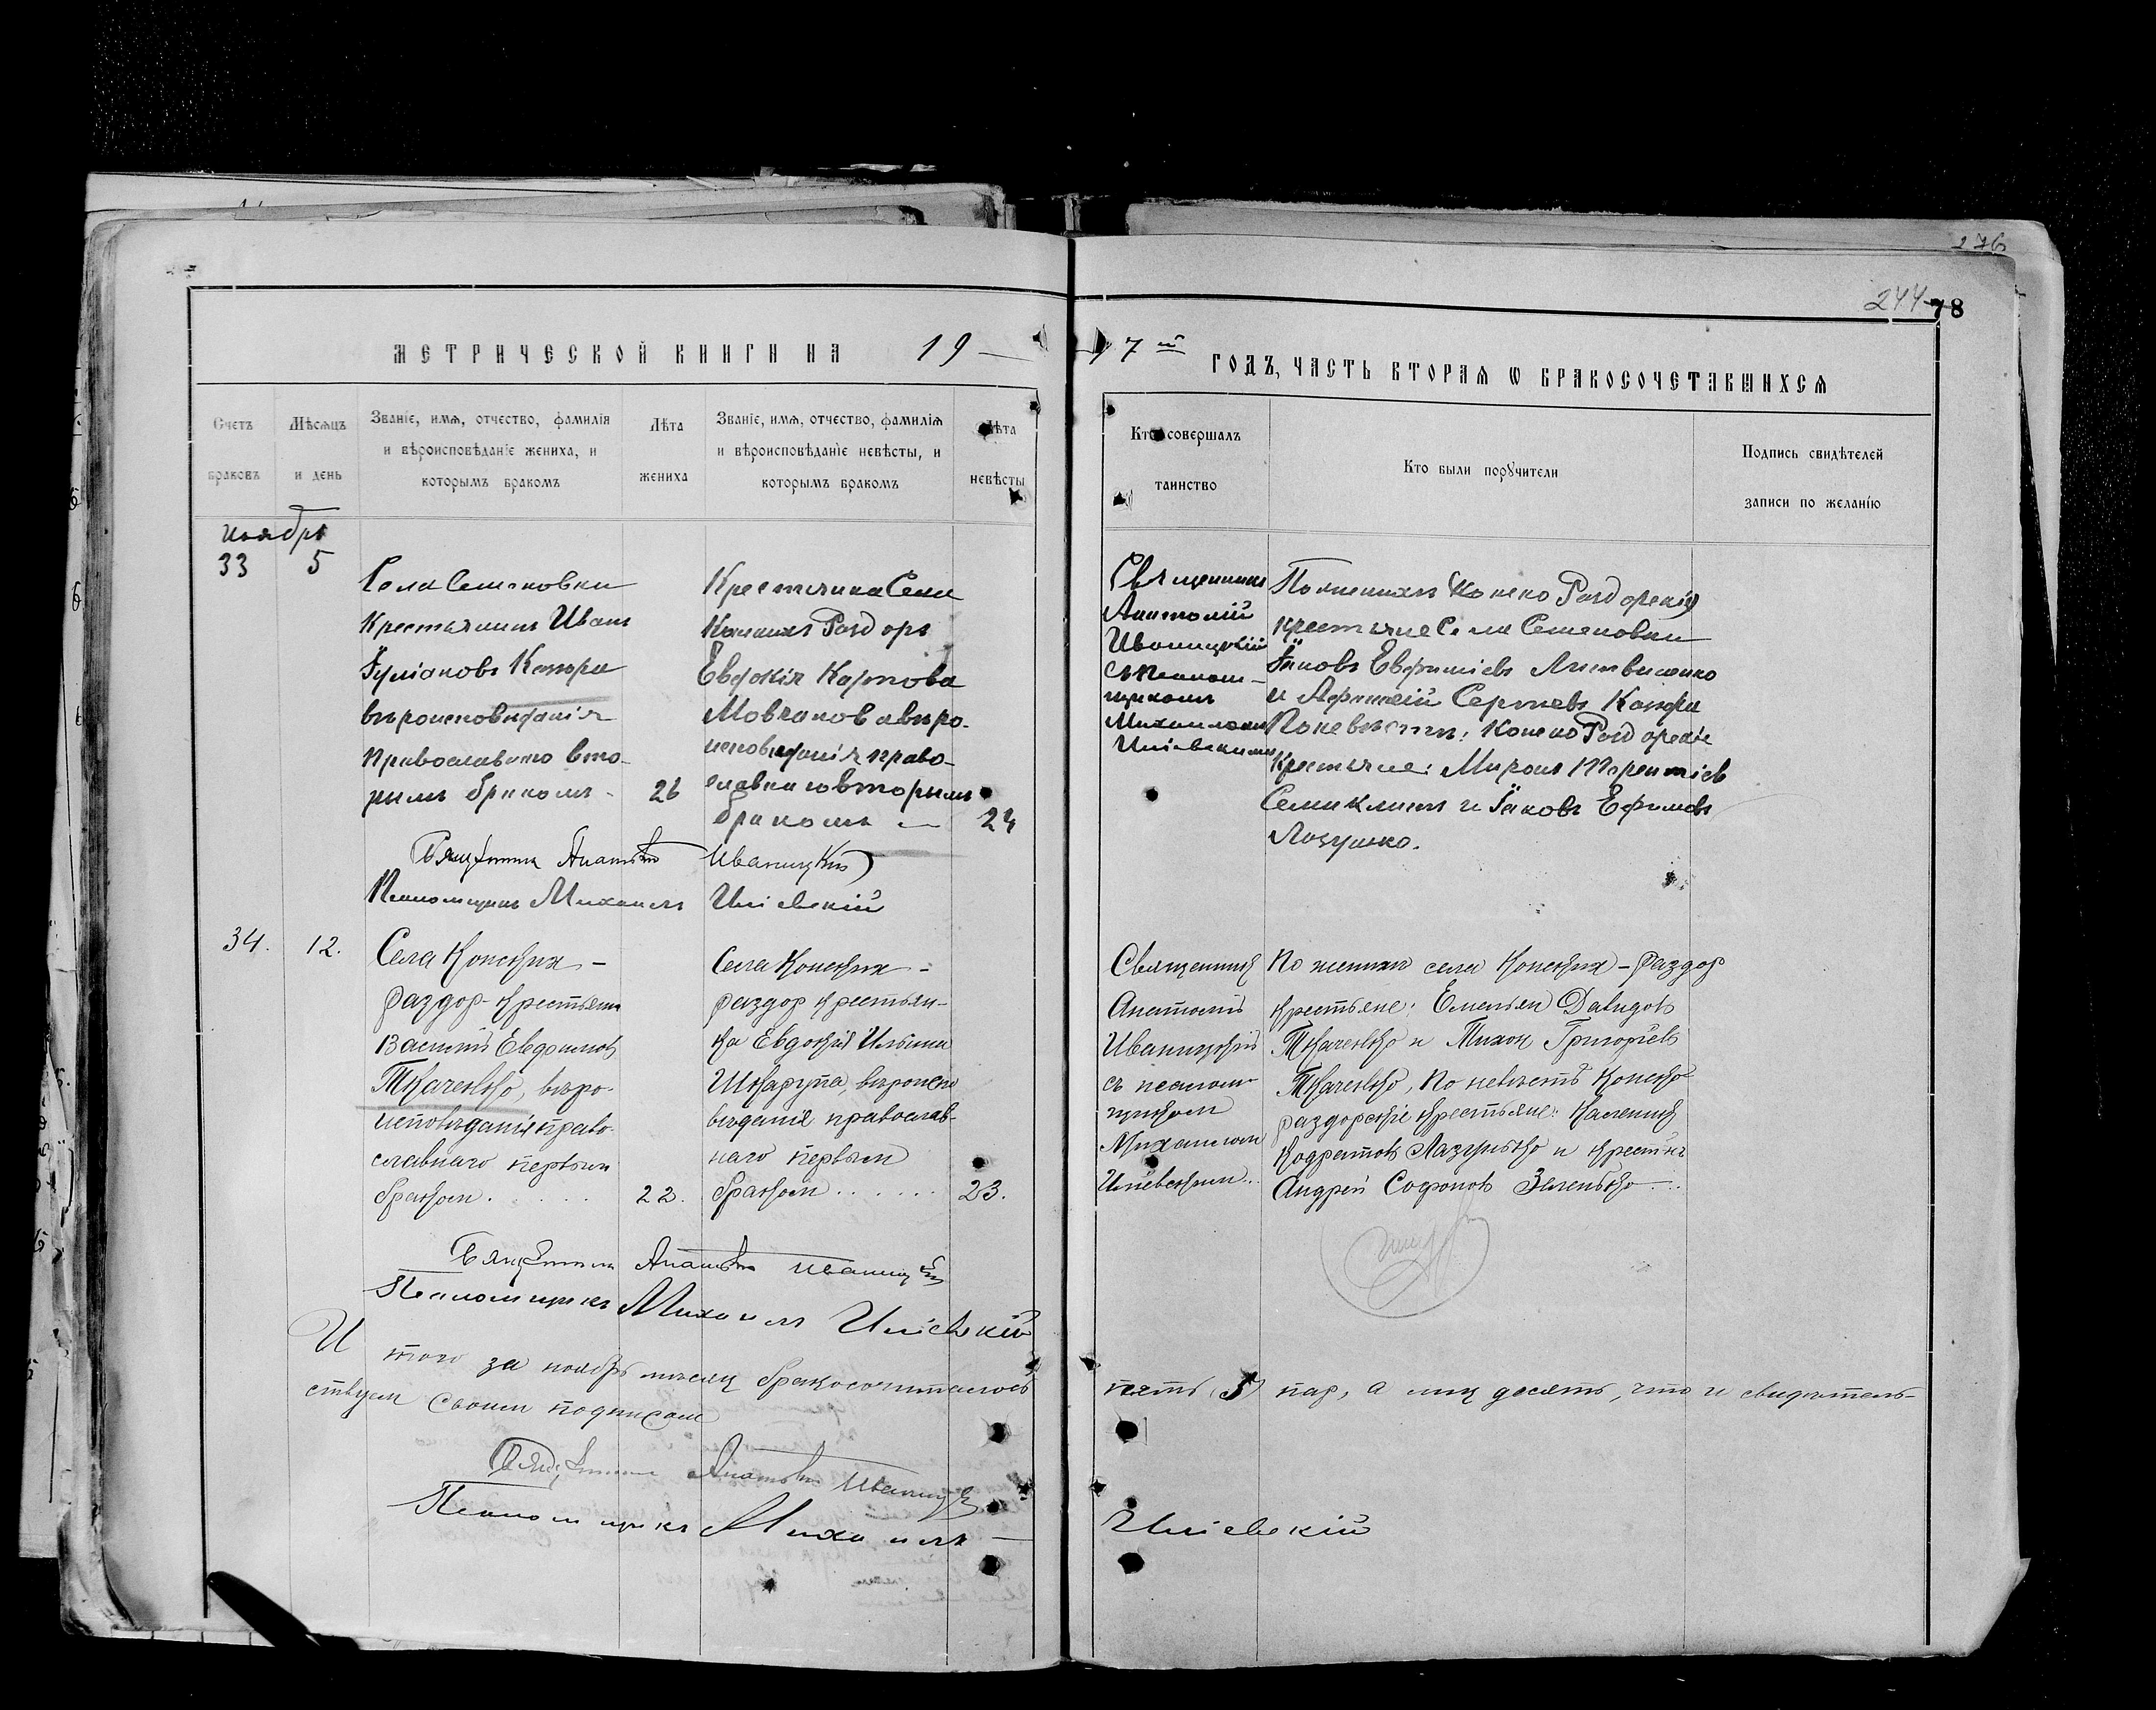 276
244 78
МЕТРИЧЕСКОЙ КНИГИ НА 19 —
— 7 го ГОДЪ, ЧАСТЬ ВТОРАЯ Ѡ БРАКОСОЧЕТАВШИХСЯ
Счетъ
браковъ
Мѣсяцъ
и день
Званіе, имя, отчество, фамилія
и вѣроисповѣданіе жениха, и
которымъ бракомъ
Лѣта
жениха
Званіе, имя, отчество, фамилія
и вѣроисповѣданіе невѣсты, и
которымъ бракомъ
Лѣта
невѣсты
Кто совершалъ
таинство
Кто были порꙋчители
Подпись свидѣтелей
записи по желанію
Ноябрь
33 5
Села Семеновки
Крестьянинъ Иванъ
Іуліановъ
вѣроисповѣданія
православнаго вто-
рымъ бракомъ - 26
Крестьянка Села
Конскихъ Роздоръ
Евдокія Карпова
Молчанова вѣро-
исповѣданія право-
славнаго вторымъ
бракомъ — 24
Священникъ
Анатолій
Иваницкій
съ псалом-
щикомъ
Михаиломъ
По женихѣ Конско Роздорскія
крестьяне Села Семеновки
Іаковъ Евфиміевъ Литвиненко
и Афанасій Сергіевъ
По невѣстѣ: Конско Роздорскіе
Крестьяне: Миронъ Терентіев
и Іаковъ Ефимовъ
Лазушко.
Священникъ Анатолій Иваницкій
Псаломщикъ Михаилъ
34. 12.
Села Конскихъ -
Раздор- крестьянин
Василій Евдокимовъ
Ткаченко, вѣро-
исповѣданія право-
славнаго первым
браком. . . . . 22.
Села Конских -
раздор крестьян-
ка Евдокія Ильина
Шкарупа, вѣроиспо
вѣданія православ-
наго первым
браком . . . . . . 23.
Священникъ
Анатолій
Иваницкій
съ псалом-
щиком
Михаилом
По жениху села Конских - Раздор
крестьяне: Емельян Давидовъ
Ткаченко и Тихон Григоріевъ
Ткаченко, По невѣстѣ Конско-
раздорскіе крестьяне: Каленикъ
Кодратовъ Лазунько и крест-нъ
Андрей Софоновъ Зеленько
Священникъ Анатолій Иваницкій
Псаломщикъ Михаилъ
Итого за ноябрь мѣсяц бракосочиталось пять (5) пар, а лиц десять, что и свидѣтель-
ствуем своим подписом
Священникъ Анатолій Иваницкій
Псаломщикъ Михаилъ —